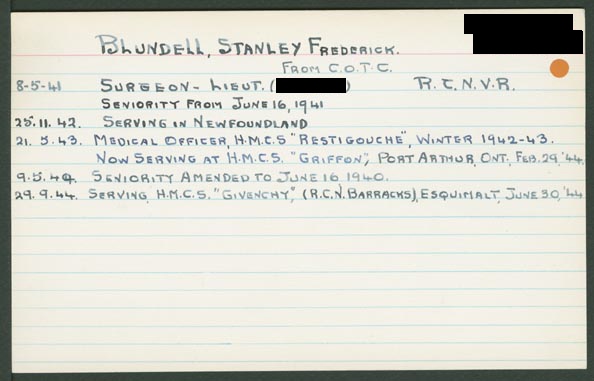 BLUNDELL, STANLEY FREDERICK.
FROM C.O.T.C.
8-5-41 SURGEON-LIEUT. ( ) R.C.N.V.R.
SENIORITY FROM JUNE 16, 1941
25.11.42. SERVING IN NEWFOUNDLAND
21.5.43. MEDICAL OFFICER, H.M.C.S "RESTIGOUCHE", WINTER 1942-43.
NOW SERVING AT H.M.C.S. "GRIFFON", PORT ARTHUR, ONT., FEB. 29, '44.
9.5.44. SENIORITY AMENDED TO JUNE 16, 1940.
29.9.44. SERVING, H.M.C.S. "GIVENCHY", (R.C.N. BARRACKS), ESQUIMALT, JUNE 30, '44